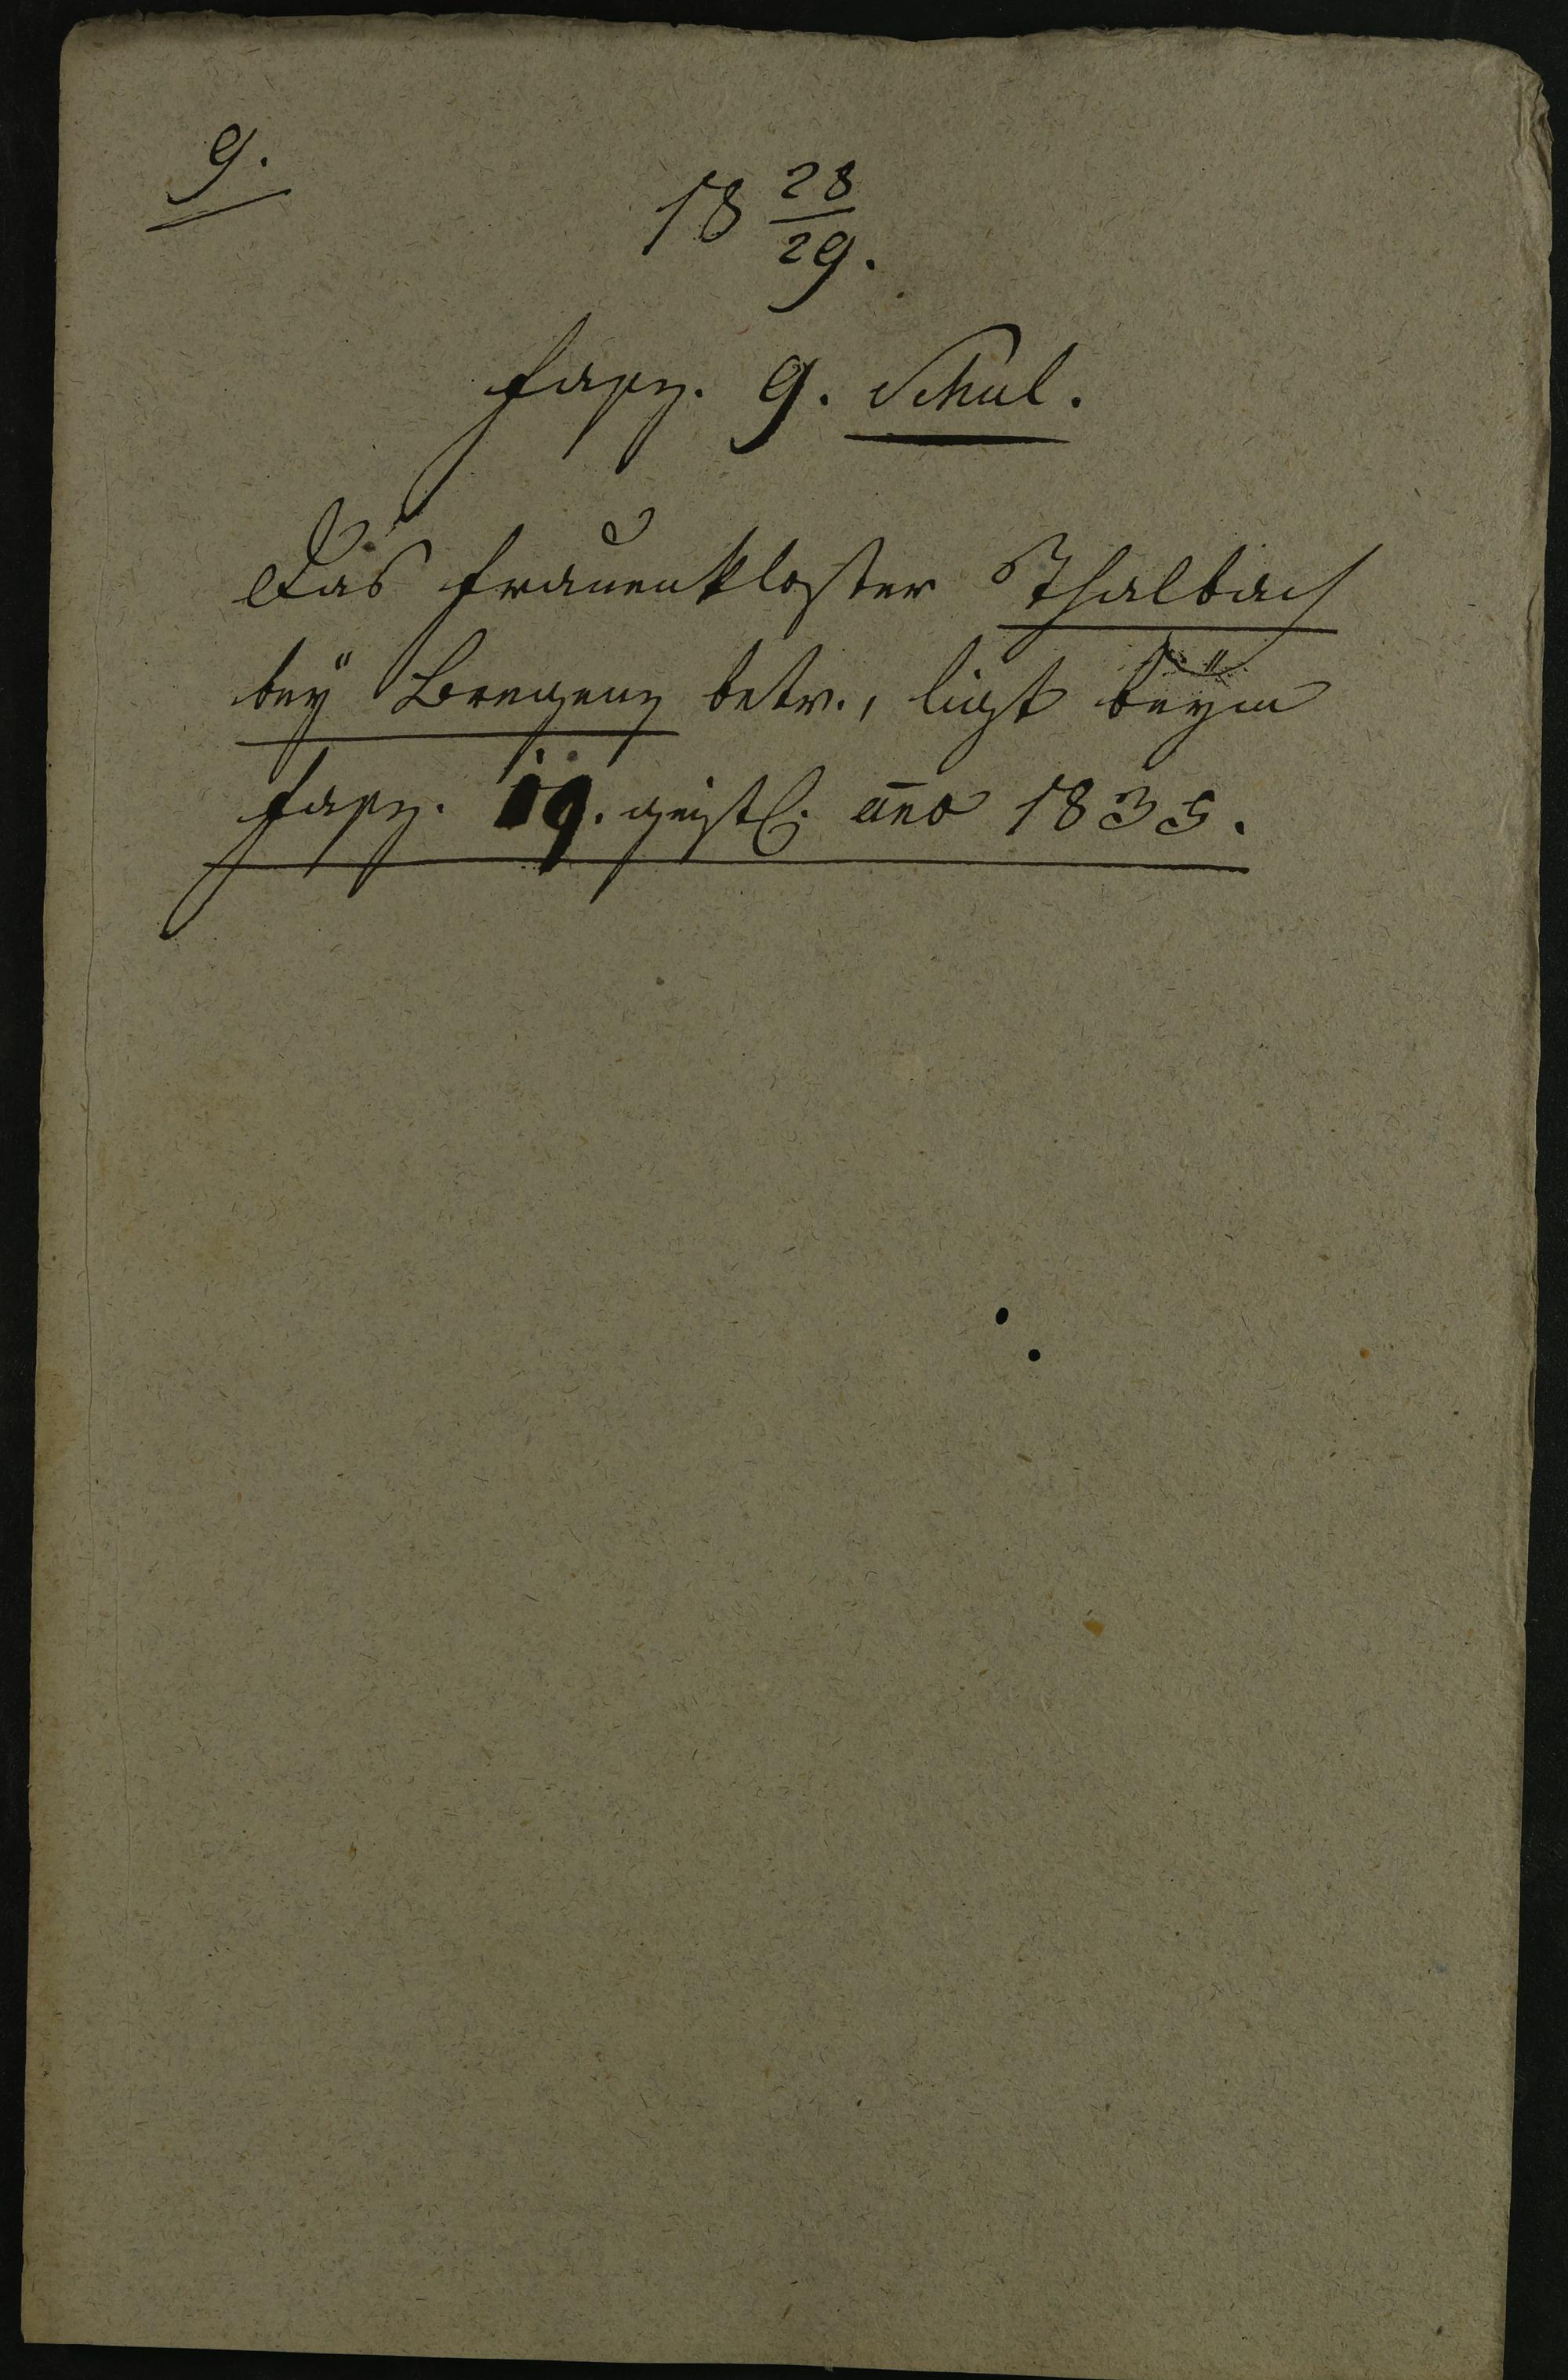 9.
18 28/29.
Fasz. 9. Schul.
Das Frauenkloster Thalbach
bey Bregenz betr., liegt beym
Fasz. 19. geistl. ano 1835.